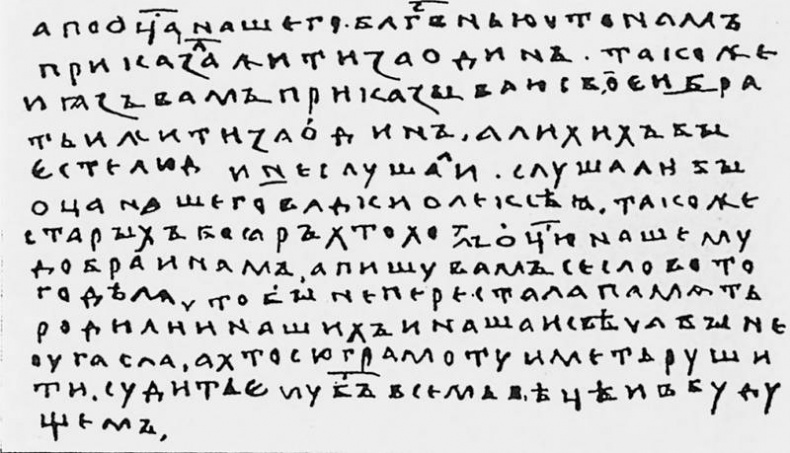 а по ѡц҃а нашего. бл҃гвнью что намъ
приказал жити заодинъ. такоже
и ꙗзъ вамъ приказываю своєи бра
тьи жити заодинъ. а лихихъ бы
єсте люд и не слушали. слушали бы
оца нашего влдки олексѣꙗ. такоже
старыхъ боꙗръ хто хотѣлъ ѡц҃ю нашему
добра и намъ. а пишу вамъ се слово то
го дѣлѧ что бы не перестала памѧть
родилии нашихъ и наша и свѣча бы не
оугасла. а хто сю грамоту иметь руши
ти. судить ємꙋ б҃ъ в семь вѣцѣ и в буду
щемь.